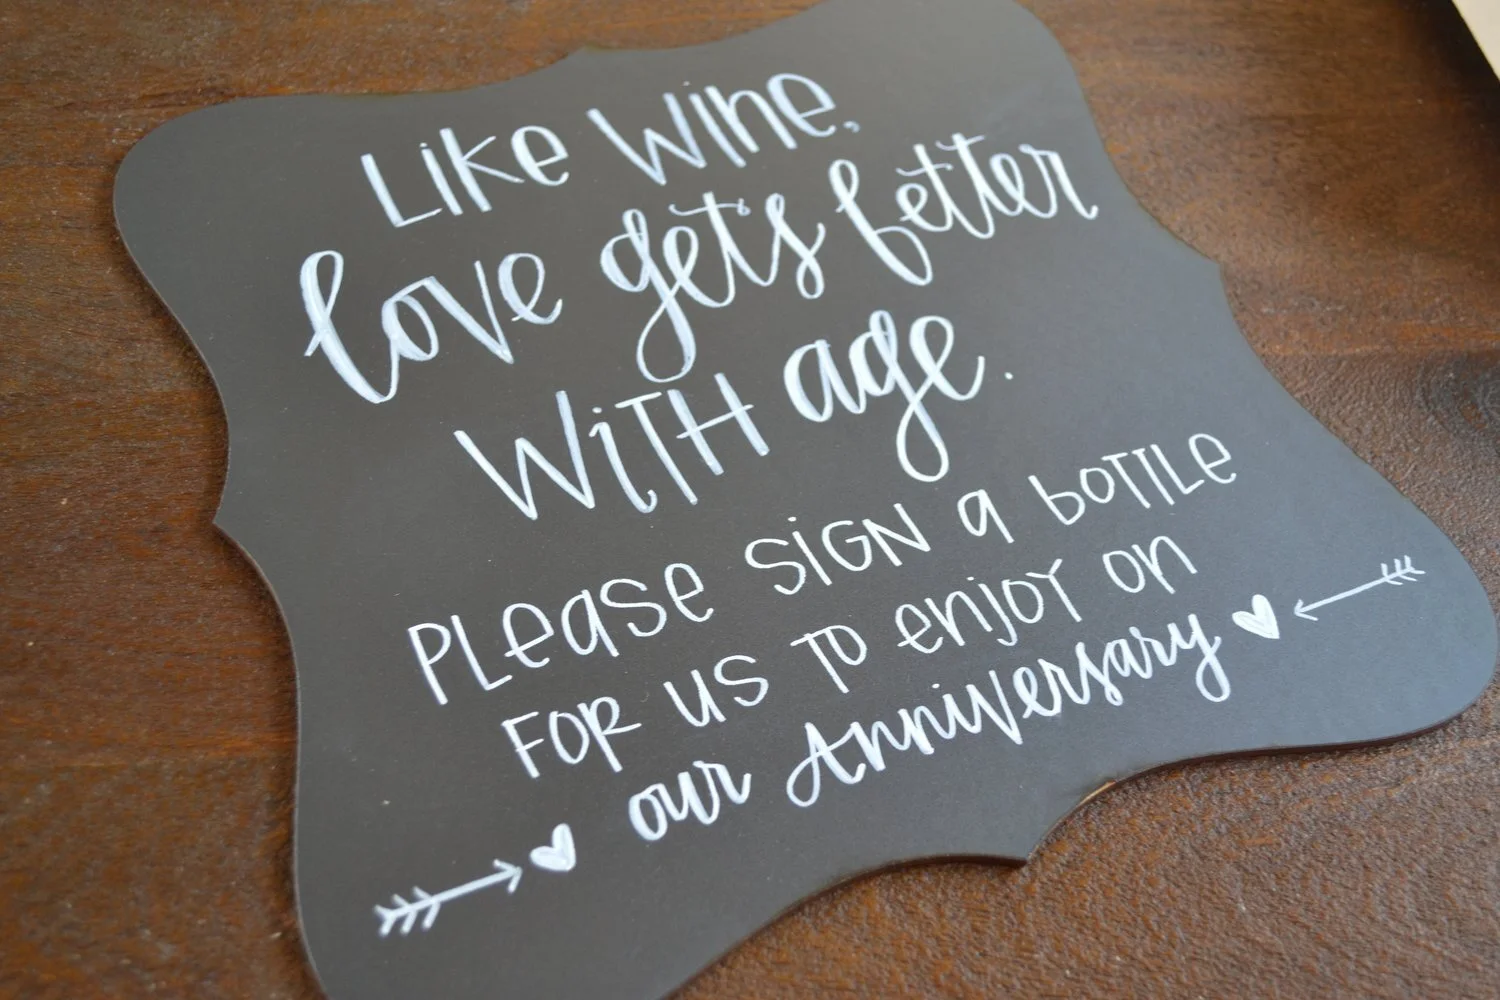 Like Wine,
love gets better
WiTH age.
PLease SiGN a boTTLe
FOR US TO enjoy on
our Anniversary